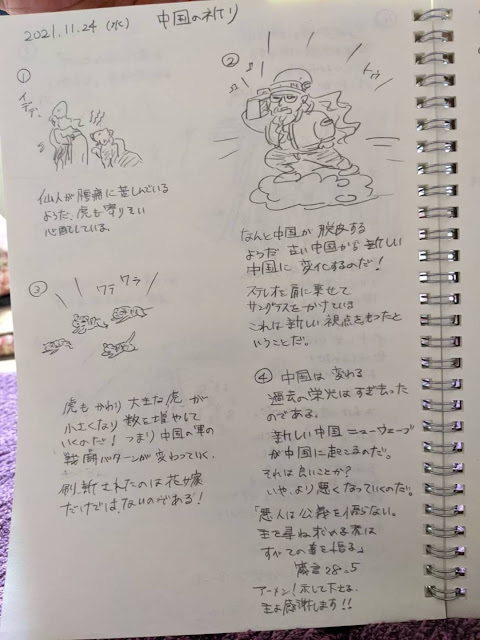 2021.11.24 (水) 中国の祈り
①
イテテ、
仙人が腰痛に苦しんでいる
ようだ、虎も寄りそい
心配している。
②
なんと中国が脱皮する
ようだ 古い中国から新しい
中国に変化するのだ!
ステレオを肩に乗せて
サングラスをかけている
これは新しい視点をもったと
いうことだ。
③
ワラ ワラ
虎もかわり 大きな虎が
小さくなり 数を増やして
いくのだ! つまり中国の軍の
戦闘パターンが変わっていく、
刷新されたのは
だけではないのである!
④ 中国は変わる
過去の栄光はすぎ去った
のである。
新しい中国ニューウェーブ
が中国に起こるのだ。
それは良いことか?
いや、より悪くなっていくのだ。
「悪人は公義を悟らない。
主を尋ね求める者は
すべての事を悟る」
箴言28.5
アーメン! 示して下さる、
主よ感謝します!!